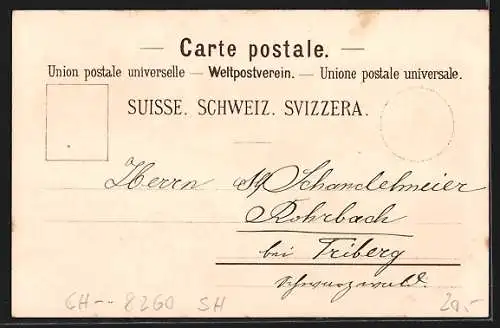 — Carte postale. —
Union postale universelle — Weltpostverein. — Unione postale universale.
SUISSE. SCHWEIZ. SVIZZERA.
Herrn Schandelmeier
Rohrbach
bei Triberg
Schwarzwald.
CH-- 8260 SH 20,-